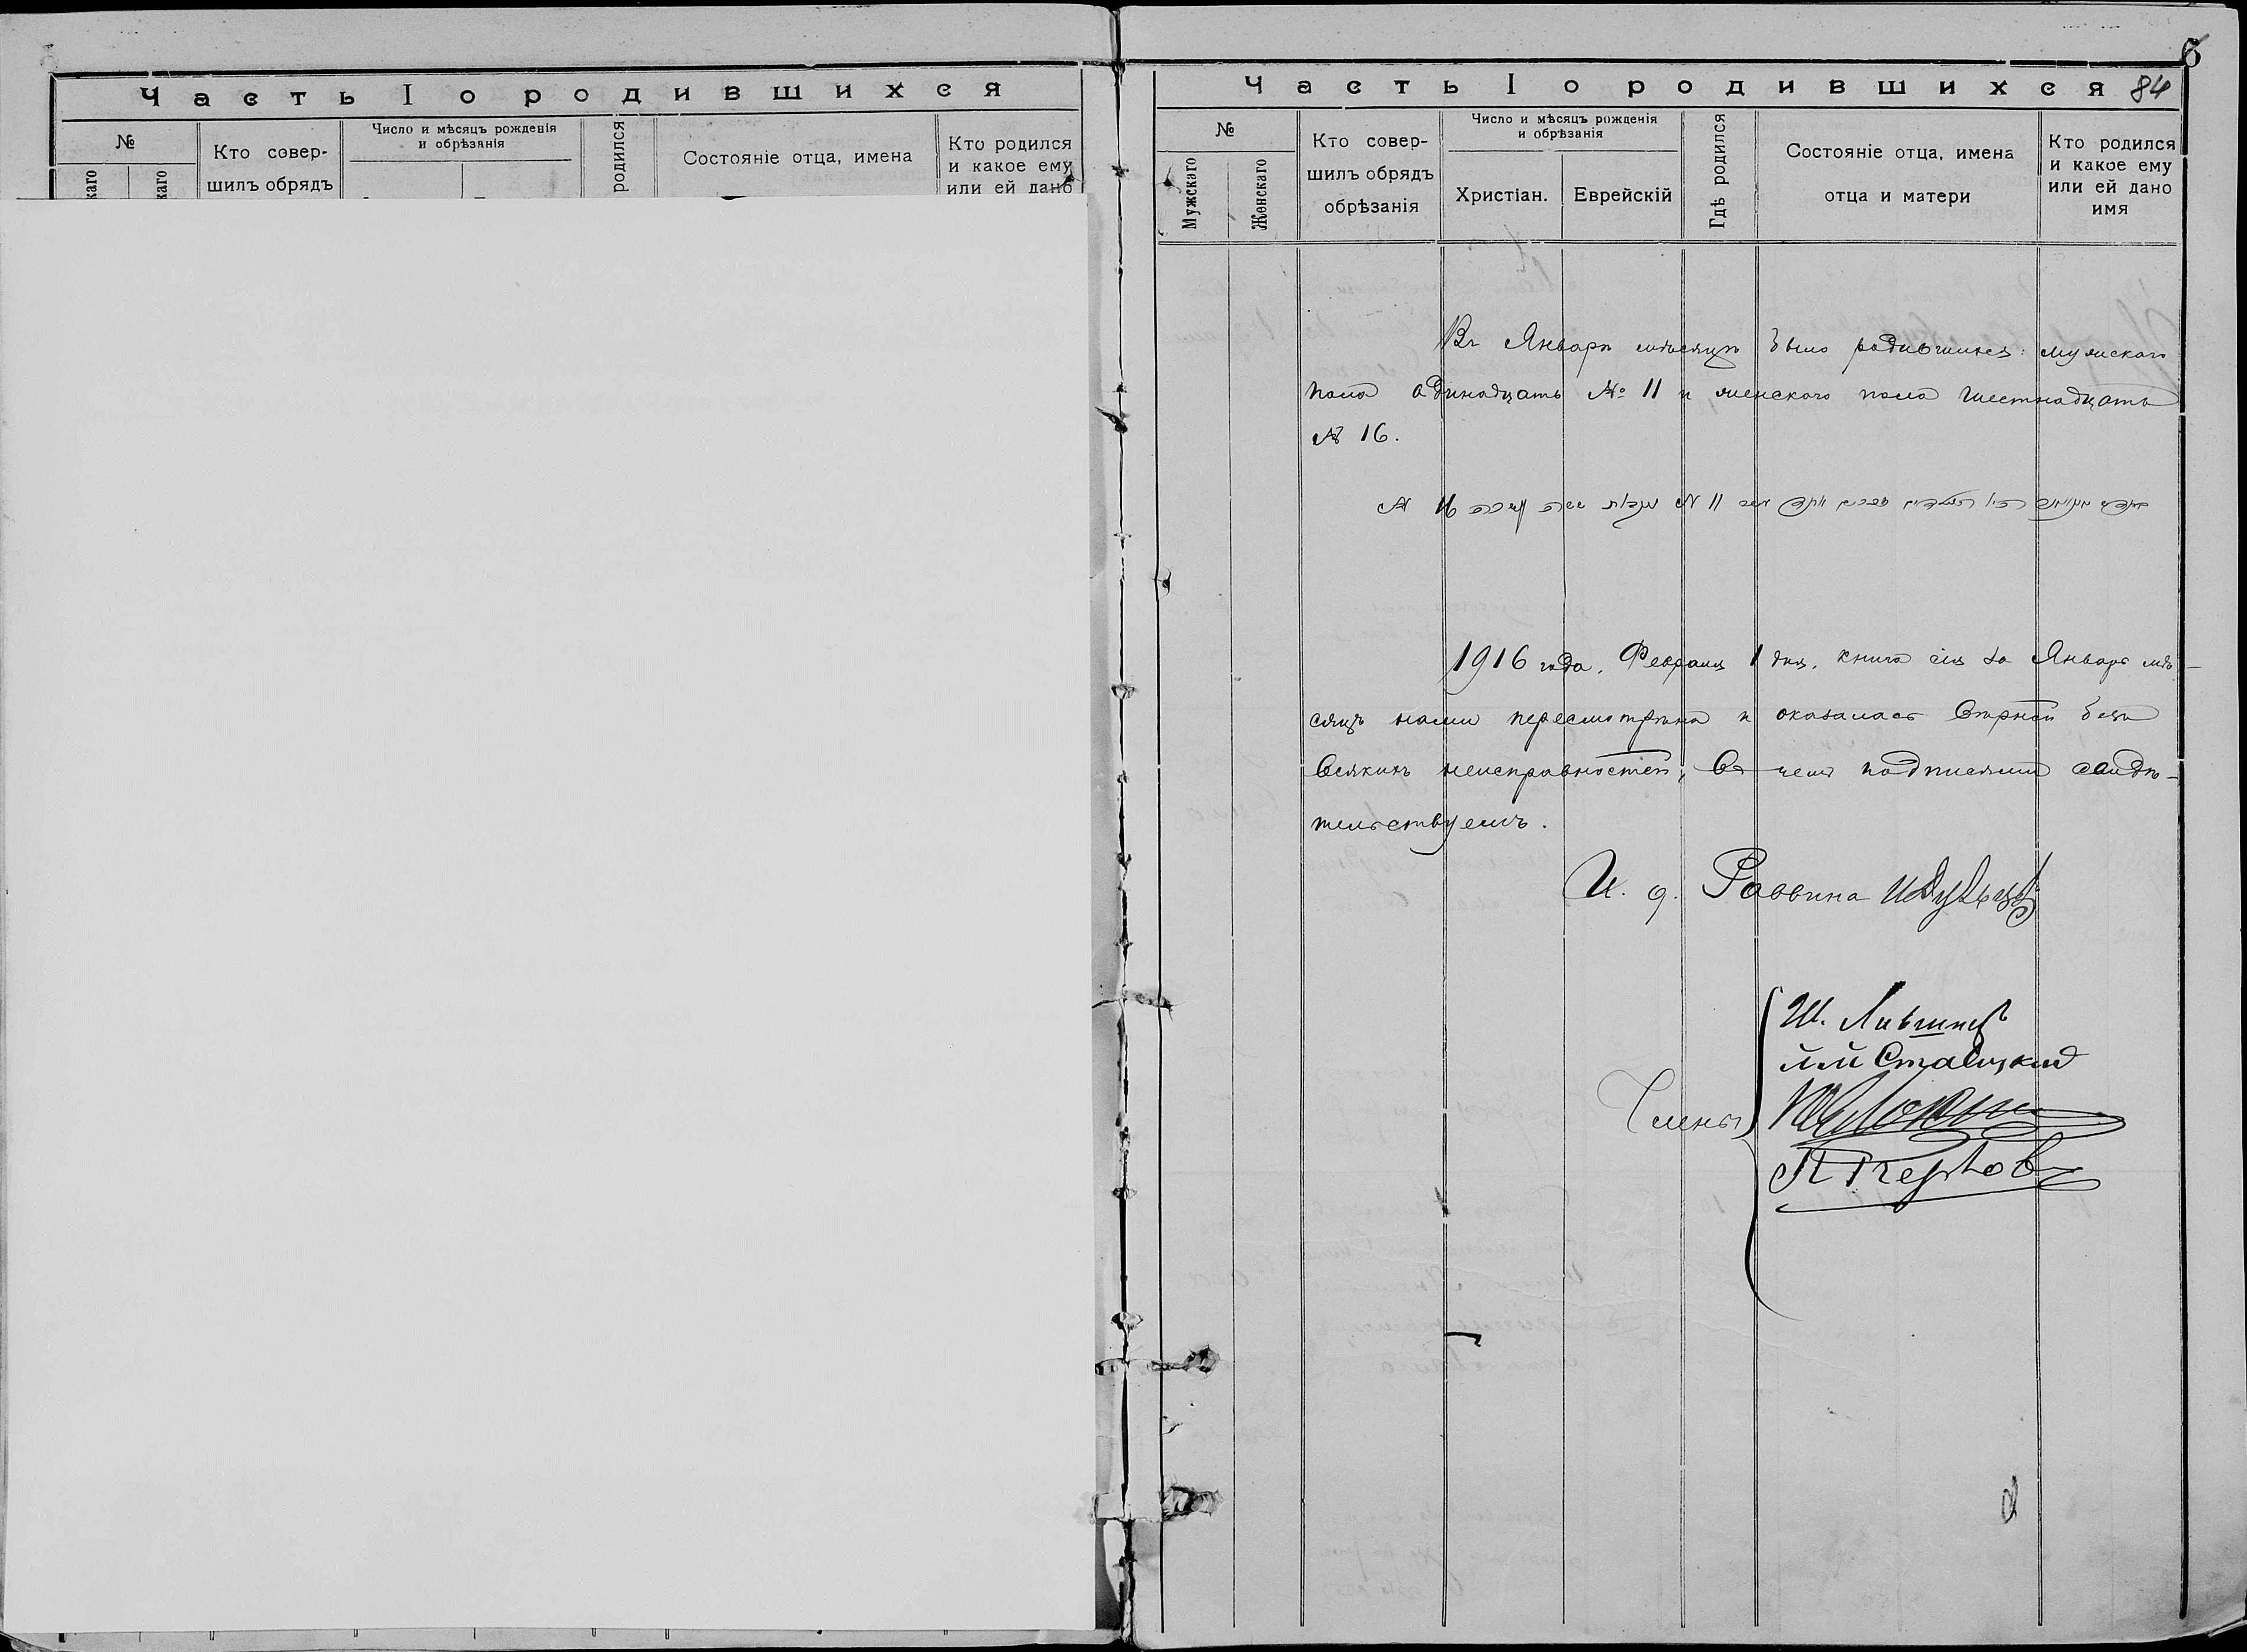 Часть I о родившихся
№
каго
каго
Кто совер-
шилъ обрядъ
Число и мѣсяцъ рожденія
и обрѣзанія
родился
Состояніе отца, имена
Кто родился
и какое ему
или ей дано
6
Часть I о родившихся 84
№
Мужскаго
Женскаго
Кто совер-
шилъ обрядъ
обрѣзанія
Число и мѣсяцъ рожденія
и обрѣзанія
Христіан.
Еврейскій
Гдѣ родился
Состояніе отца, имена
отца и матери
Кто родился
и какое ему
или ей дано
имя
Въ Январѣ мѣсяцѣ было родившихся: мужскаго
пола одинадцать № 11 и женскаго пола шестнадцать
№ 16.
№ 11
№ 16
1916 года, Февраля 1 дня, книга сія за Январь мѣ-
сяцъ нами пересмотрѣна и оказалась вѣрной безъ
всякихъ неисправностей, въ чемъ подписями свидѣ-
тельствуемъ.
И. д. Раввина
Члены
Ш. Лившицъ
Ставицкій